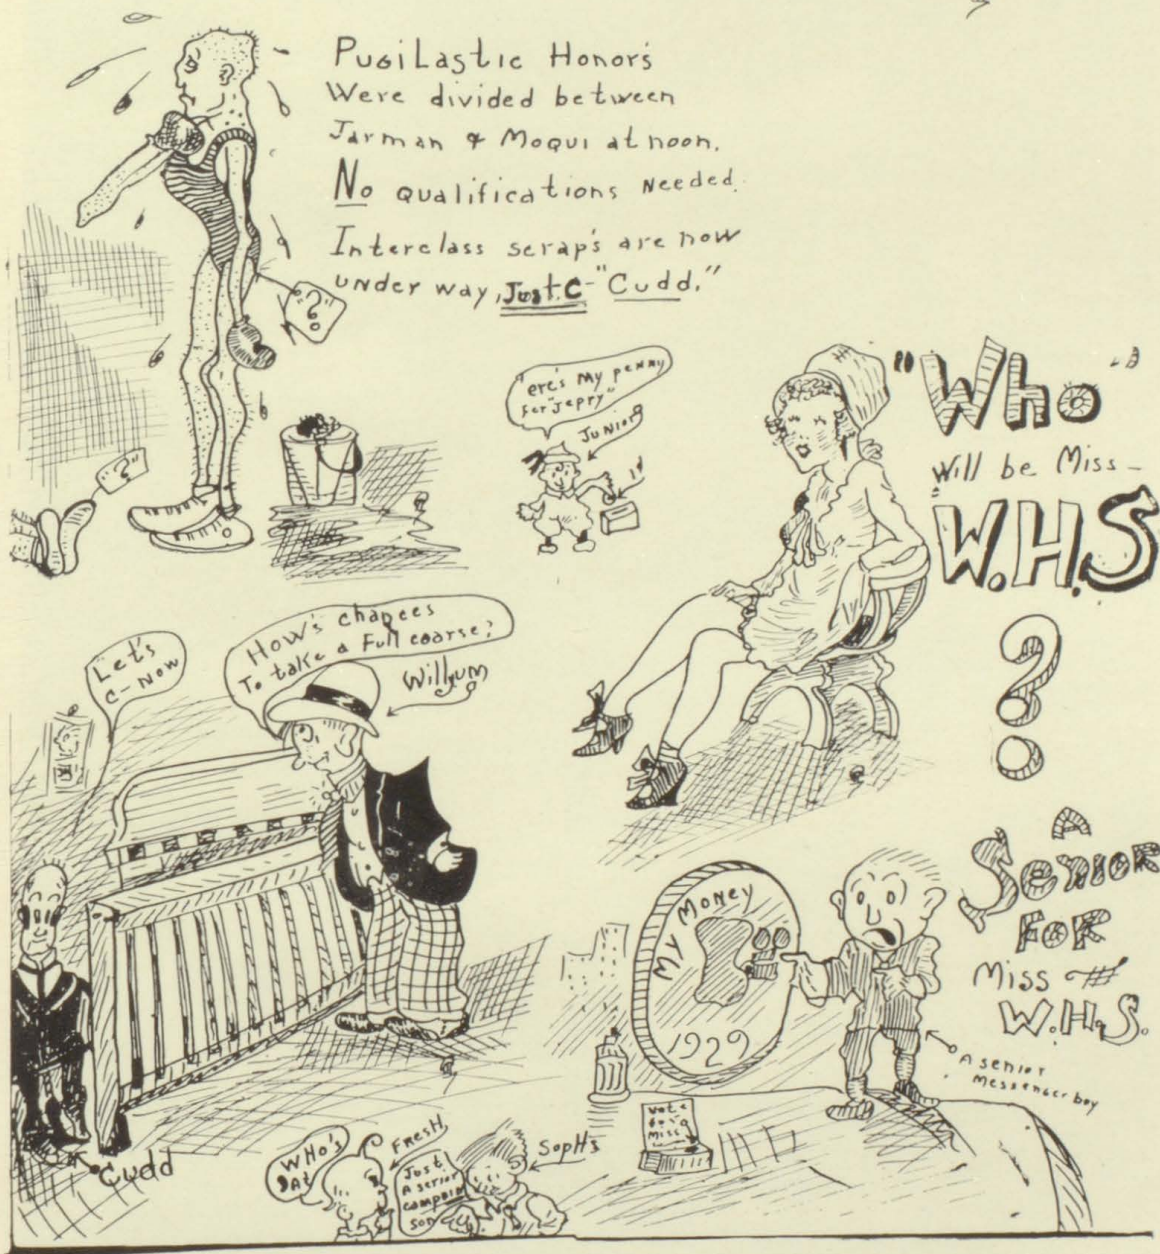 PugiLastic Honors
Were divided between
Jarman & Moqui at noon.
No qualifications Needed.
Interclass scrap's are now
under way, Just. C-"Cudd."
"?"
"?"
'ere's My penny
for "Jepry"
Junior
"Who"
Will be Miss -
"W.H.S
?
Let's
C-Now
How's chances
To take a Full coarse?
Willyum
Cudd
A
Senior
For
Miss
W.H.S.
My Money
1929
A senior
Messenger boy
Vote
for
Miss
Who's
Dat
Fresh
Just
A senior
campain
son
Soph's